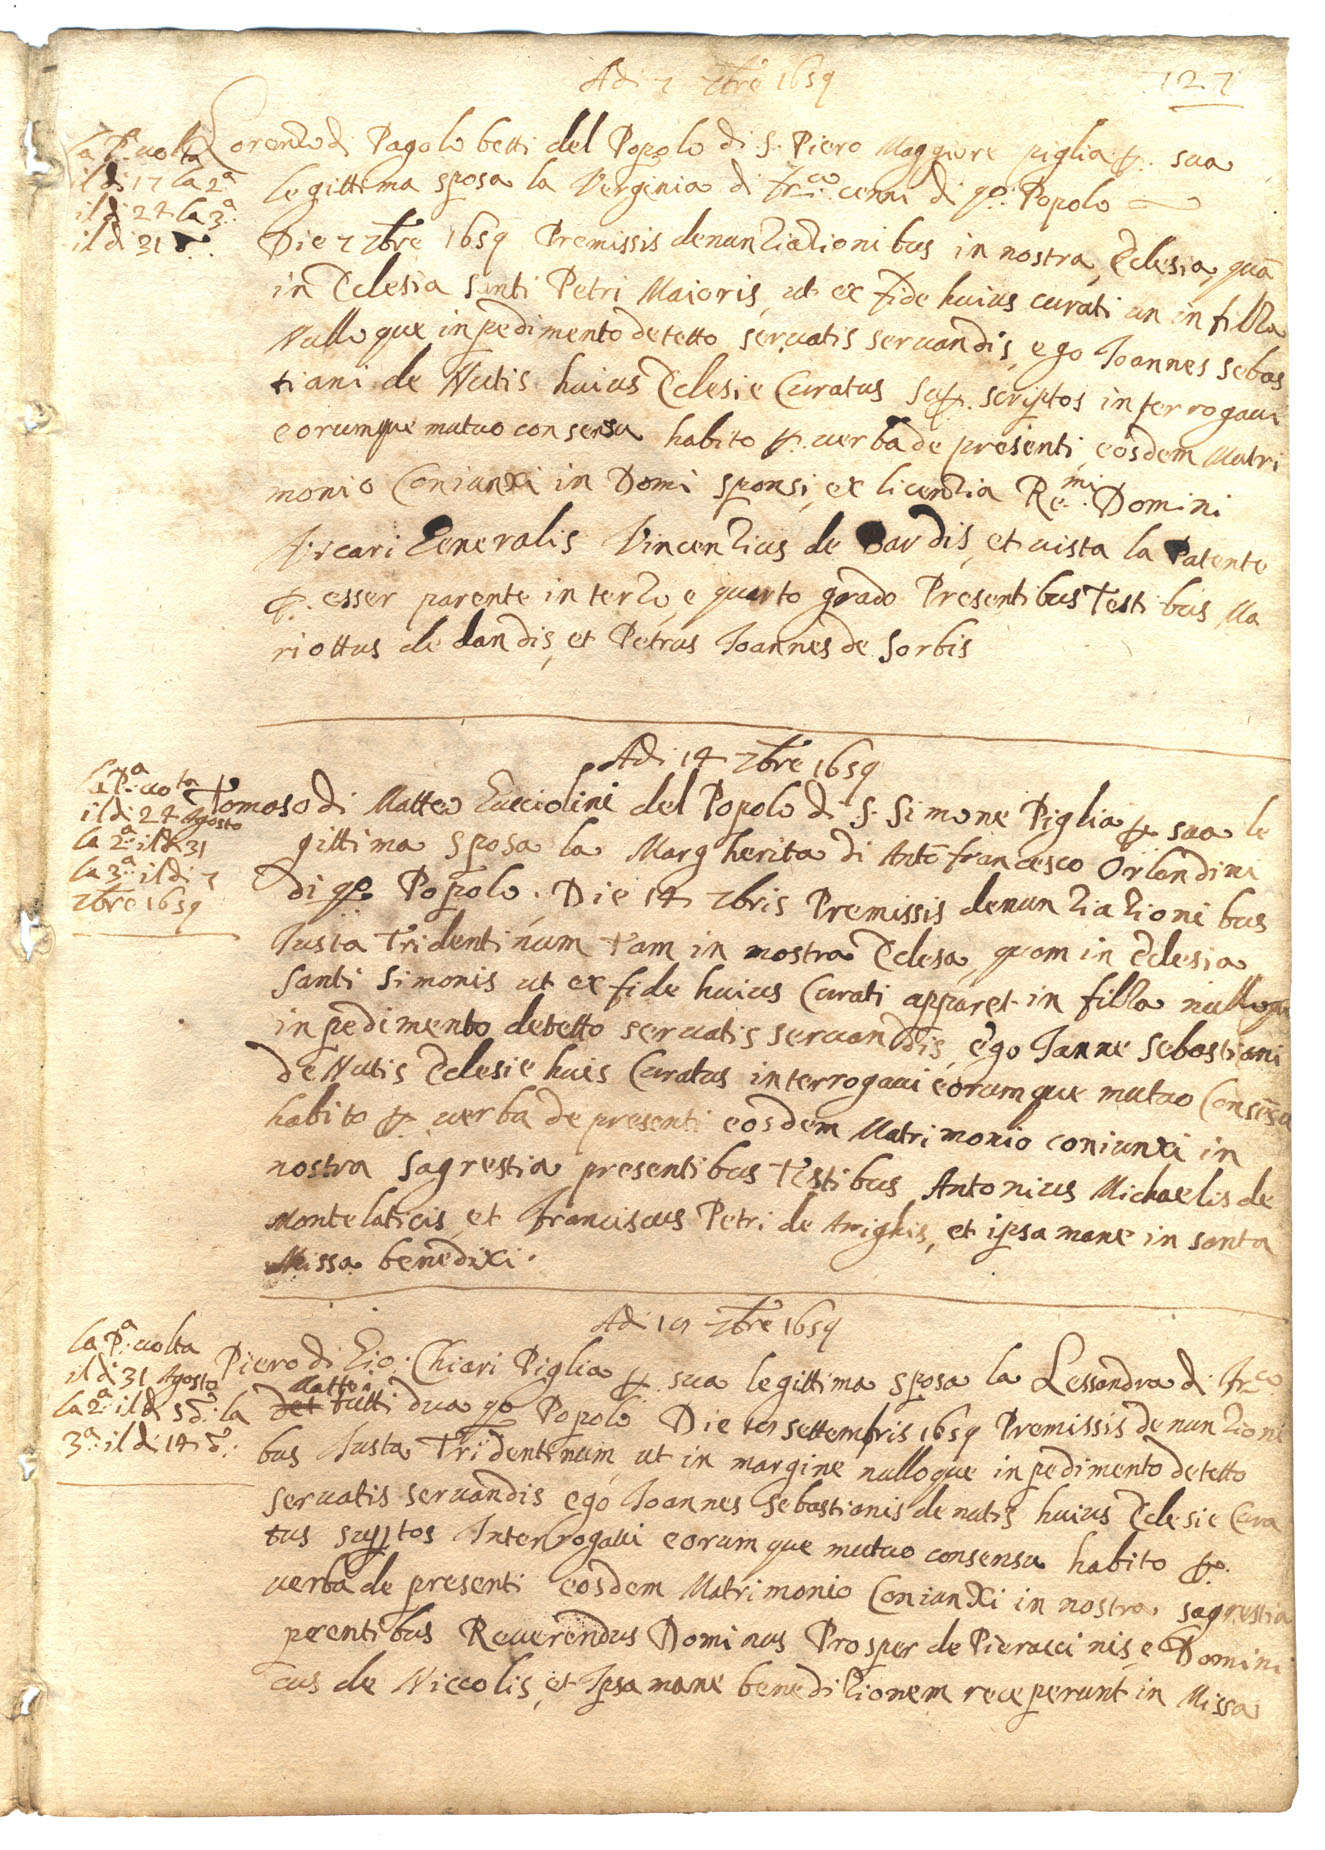 Adi 7 7bre 1659
127
La P.a uolta
il di 17 la 2a
il di 24 la 3a
il di 31 d.o
Lorenzo di Pagolo betti del Popolo di S. Piero Maggiore piglia p. sua
legittima sposa la Verginia di Fr.co cenni di q.o Popolo
Die 7 7bre 1659 Premissis denunziazionibus in nostra Eclesia, quā
in Eclesia Santi Petri Maioris, ut ex fide huius curati un in filza
Nulloque inpedimento detetto seruatis seruandis, ego Joannes sebas
tiani de Nutis huius Eclesie Curatus Sup. scriptos interrogaui
eorumque mutuo consensu habito p. uerba de presenti, eosdem Matri
monio Coniunxi in Domi sponsi, ex licenzia Re.mi Domini
Vicari Generalis Vincenzius de Bardis, et uista la Patente
p. esser parente in terzo, e quarto grado Presentibus Testibus Ma
riottus de landis, et Petrus Joannes de Sorbis
Adi 14 7bre 1659
La P.a uolta
il di 24 Agosto
la 2.a il di 31
la 3.a il di 7
7bre 1659
Tomaso di Matteo Lucciolini del Popolo di S. Simone Piglia p. sua le
gittima sposa la Margherita di Antō francesco Orlandini
di q.o Popolo. Die 14 7bris Premissis denunziazionibus
Justa Tridentinum tam in nostra Eclesa, quam in Eclesia
Santi Simonis ut ex fide huius Curati apparet in filza nulloque
inpedimento detetto seruatis seruandis, ego Janne sebastiani
de Nutis Eclesie huis Curatus interrogaui eorumque mutuo Consēsu
habito p. uerba de presenti eosdem Matrimonio coniunxi in
nostra sagrestia presentibus Testibus Antonius Michaelis de
Montelaticis, et Franciscus Petri de Arrighis, et ipsa mane in santa
Missa benedixi.
Adi 19 7bre 1659
La P.a uolta
il di 31 Agosto
la 2.a il di 5 d.o la
3.a il di 14 d.o
Piero di Gio: Chiari Piglia p. sua legittima sposa la Lessandra di Fr.co
Mattei
del tutti dua q.o Popolo Die 19 settembris 1659 Premissis denunzioni
bus Justa Tridentinum, ut in margine nulloque inpedimento detetto
seruatis seruandis ego Joannes sebastianis de nutis huius Eclesie Cura
tus supptos Interrogaui eorumque mutuo consensu habito p.
uerba de presenti eosdem Matrimonio Coniunxi in nostra sagrestia
prentibus Reuerendus Dominus Prosper de Pieraccinis, e Domini
cus de Niccolis, et Ipsa mane benedizionem receperunt in Missa